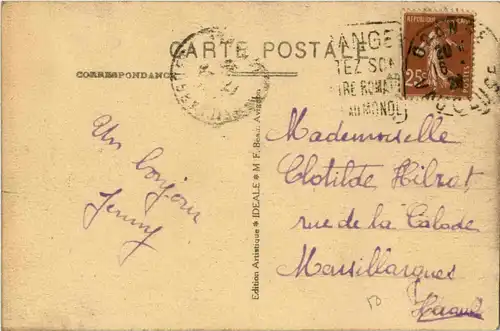 CARTE POSTALE
CORRESPONDANCE
ANGE
TEZ SON
RE ROMA
AU MOND
25c
POSTES
Un bonjour
Jenny
Edition Artistique * IDEALE * M. F. Béal, Avignon
Mademoiselle
Clotilde Hilrat
rue de la Calade
Marsillargues
Hérault